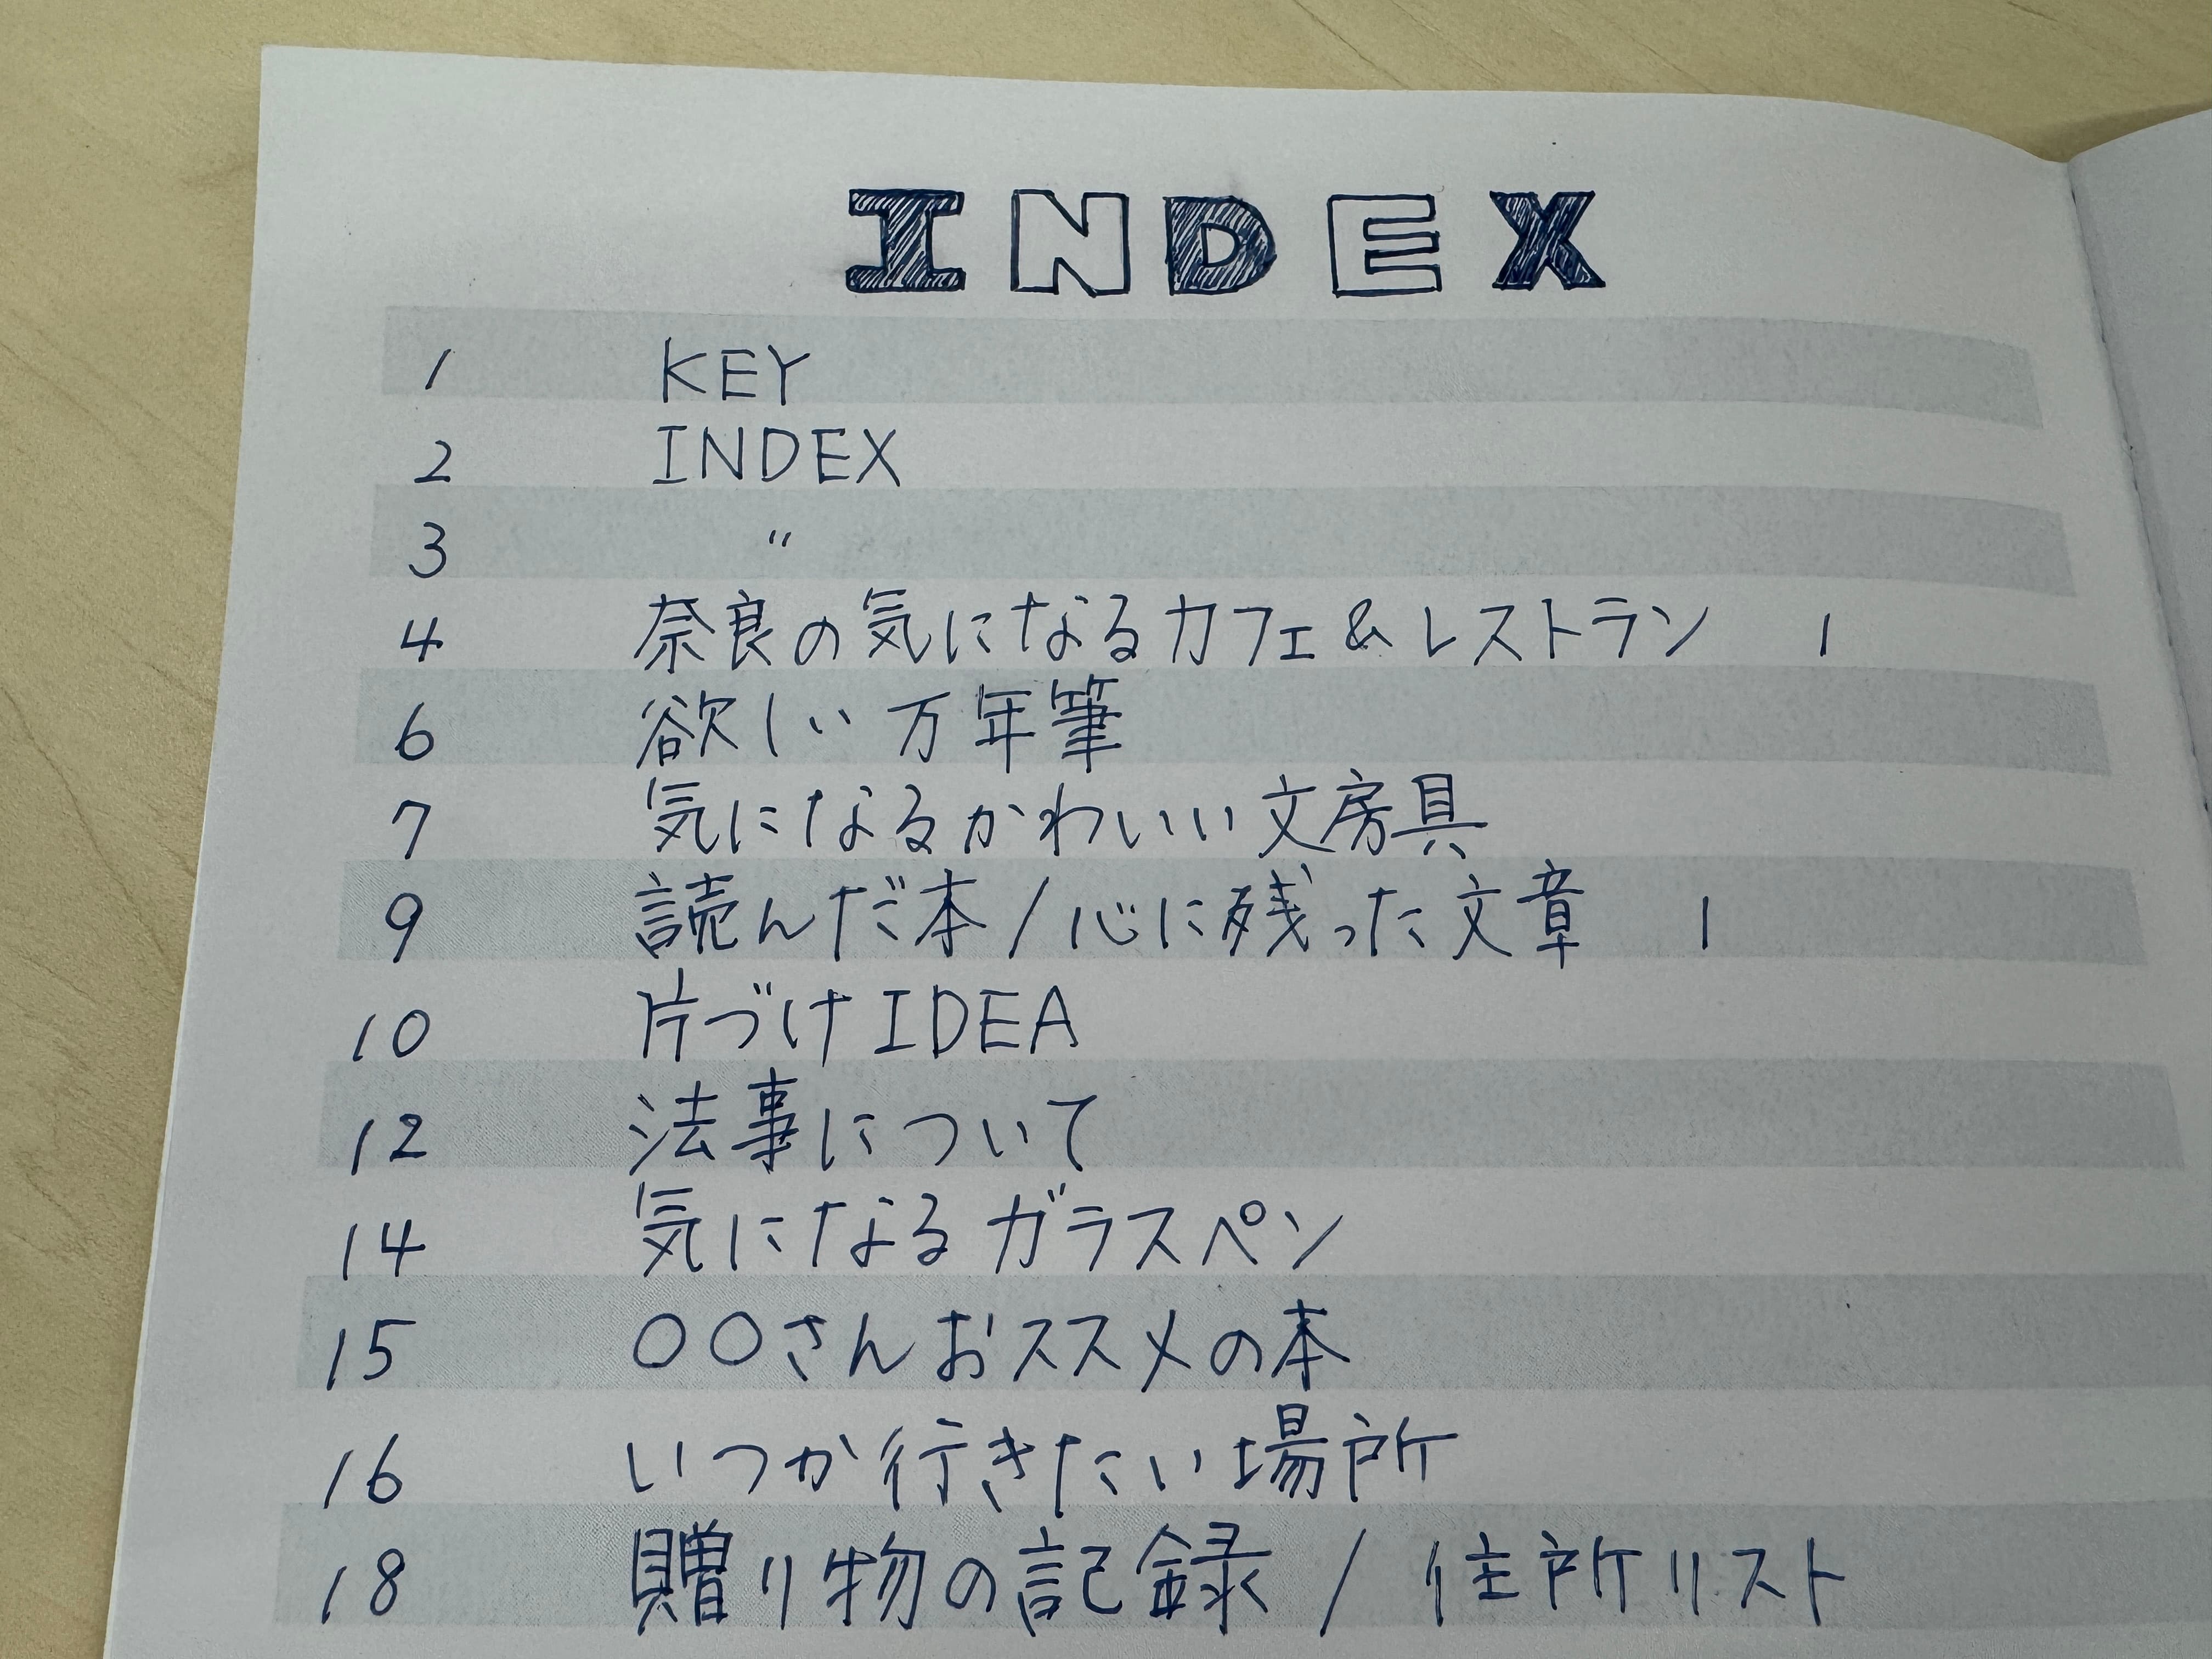 INDEX
1 KEY
2 INDEX
3 〃
4 奈良の気になるカフェ&レストラン 1
6 欲しい万年筆
7 気になるかわいい文房具
9 読んだ本/心に残った文章 1
10 片づけIDEA
12 法事について
14 気になるガラスペン
15 〇〇さんおススメの本
16 いつか行きたい場所
18 贈り物の記録/住所リスト